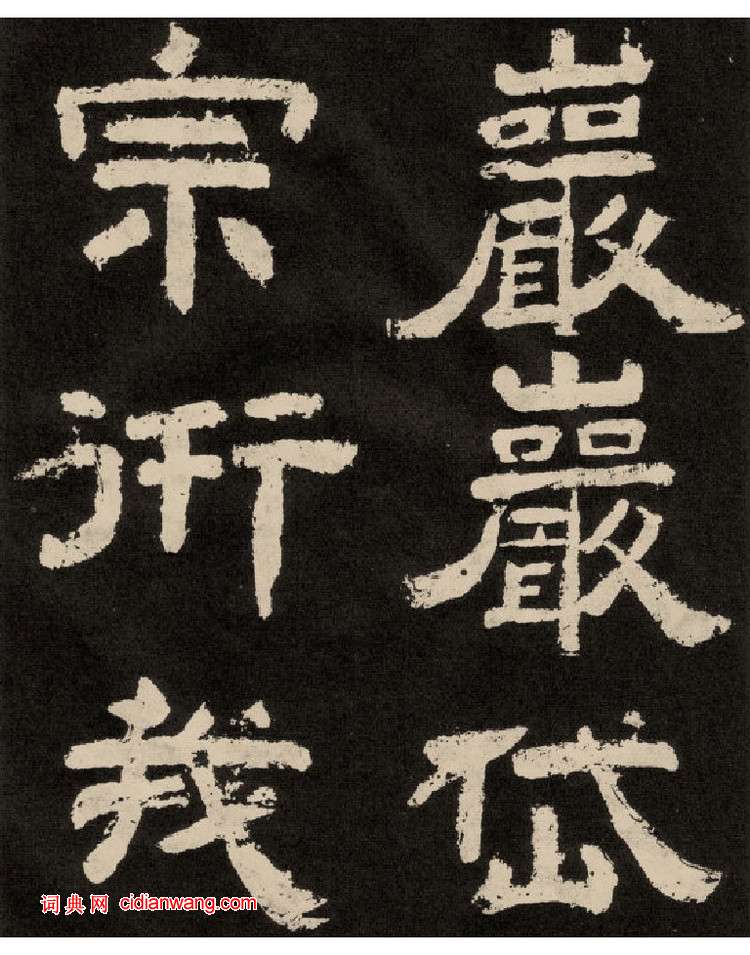 巖巖岱
宗衎我
词典网 cidianwang.com